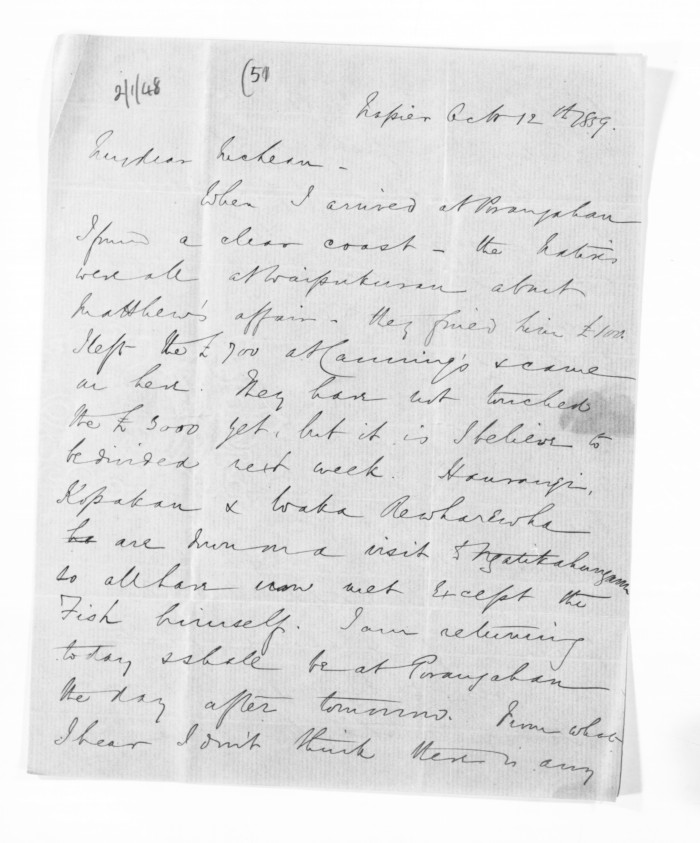 2/1/48
(51
Napier Octr 12th 1859.
My dear McLean -
When I arrived at Porangahau
I found a clear coast - the Natives
were all at Waipukurau about
Matthew's affair - they fined him £100.
I left the £700 at Canning's & came
on here. They have not touched
the £3000 yet, but it is I believe to
be divided next week. Haurangi,
Kopakau & Waka Rewharewha
are down on a visit to Ngatikahungunu
so all have now met Except the
Fish himself. I am returning
today & shall be at Porangahau
the day after tomorrow. From what
I hear I don't think there is any